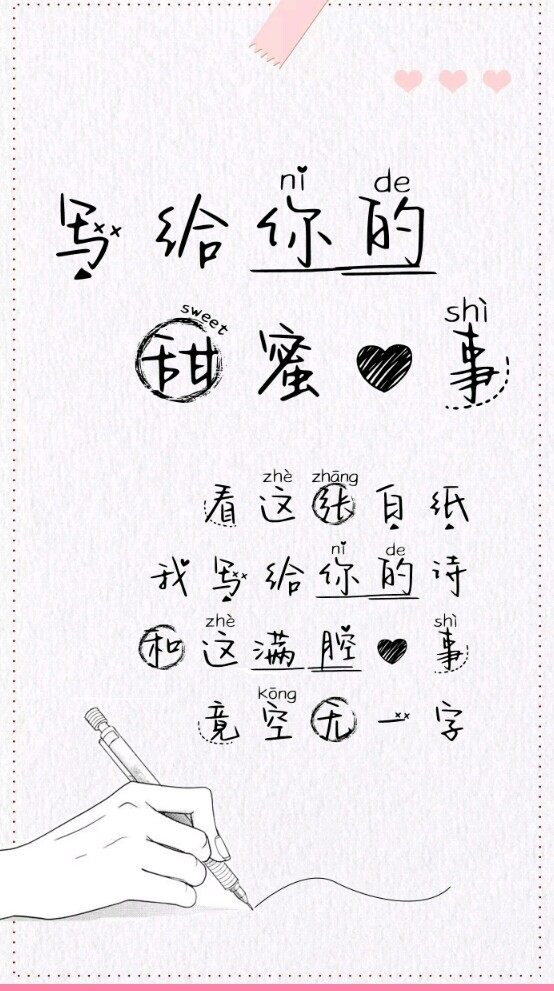 nǐ de
写给你的
sweet shì
甜蜜♥事
zhè zhāng
看这张白纸
nǐ de
我写给你的诗
zhè shì
和这满腔♥事
kōng
竟空无一字